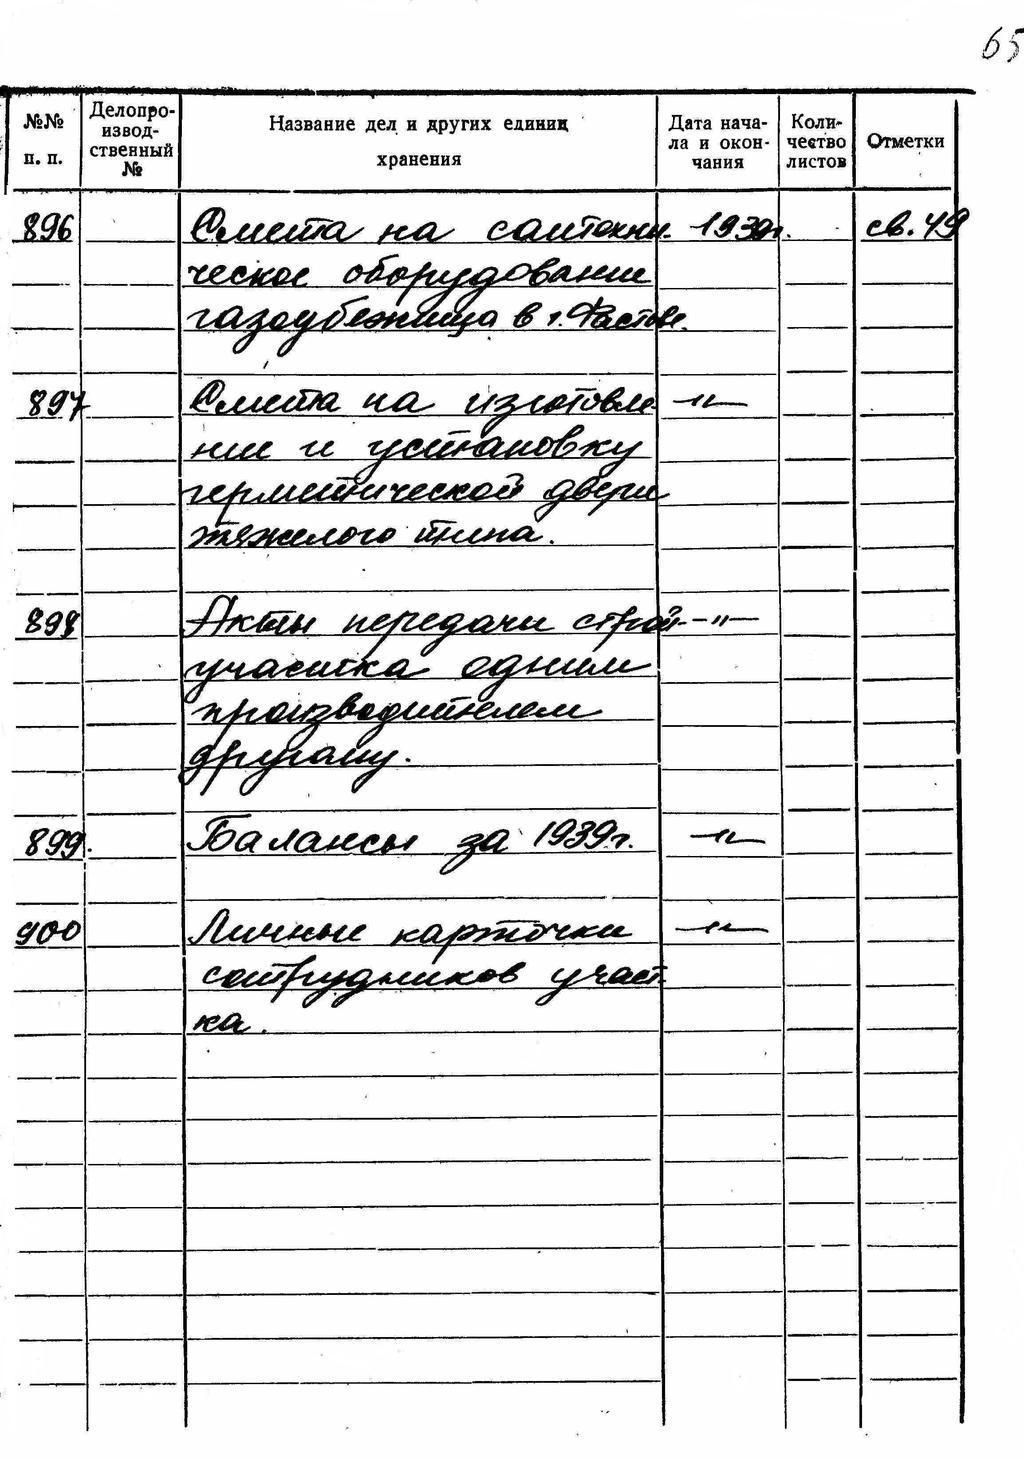 65
№№ п. п.
Делопро-
извод-
ственный
№
Название дел и других единиц
хранения
Дата нача-
ла и окон-
чания
Коли-
чество
листов
Отметки
896 Смета на сантехни- 1939г. св. 49
ческое оборудование
газоубежища в г. Фастове.
897 Смета на изготовле- —"—
ние и установку
герметической двери
тяжелого типа.
898 Акты передачи строй- —"—
участка одним
производителем
другому.
899. Балансы за 1939г. —"—
900 Личные карточки —"—
сотрудников участ-
ка.